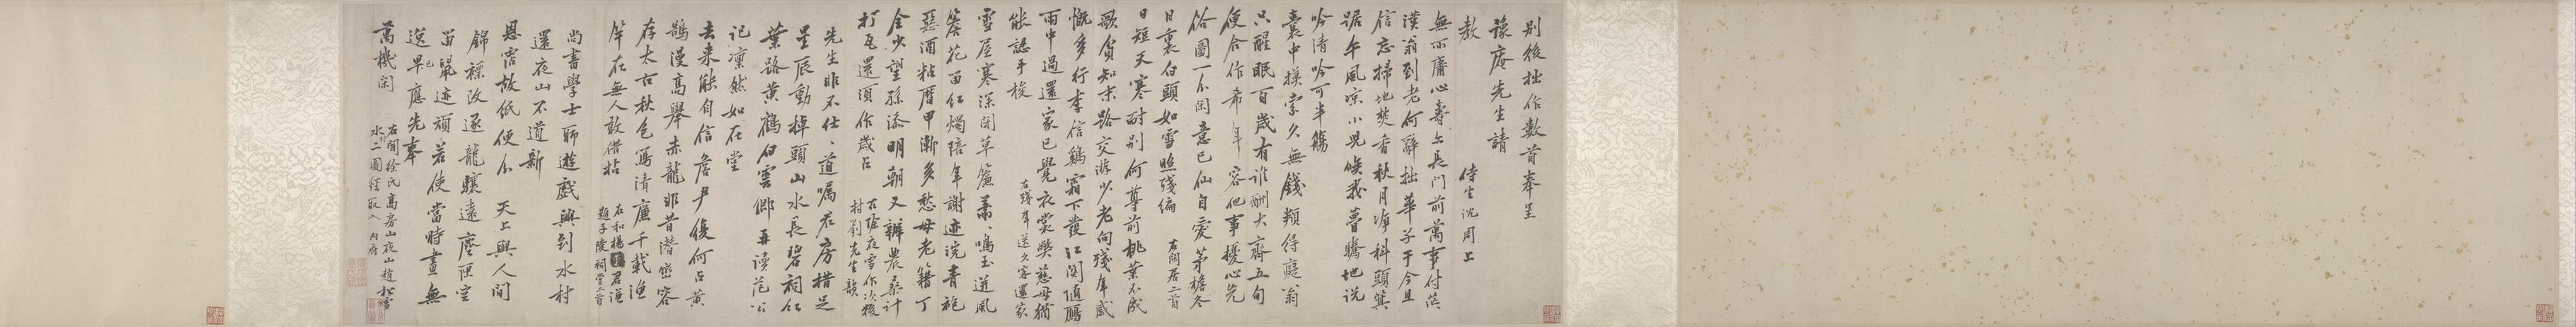 別後拙作數首奉呈
豫庵先生請
教　侍生沈周上
無所庸心壽亦長門前萬事付茫
漢翁到老何辭拙華子于今且
信忘掃地焚香秋月淨科頭箕
踞午風涼小兒喚我蒼騰地説
吟清吟可半觴
囊中摸索久無錢類得龐翁
只醒眠百歲有誰酬大齊五旬
便合作希年容他事擾心先
俗圖一不閑意已仙自愛茅檐冬
日裏白頭如雪照殘編　右閑居二首
日短天寒耐別何尊前桃葉不成
歌貧知末路交游少老向殘年感
慨多行李信鷄霜下發江關值鴈
雨中過還家已覺衣裳獘慈母猶
能認手梭　右殘年送久客還家
雪屋寒深閉草簾蕭蕭鳴玉送風
簷花留紅燭陪年謝迹浣青袍
惡酒粘曆甲漸多愁母老籍丁
全少望孫添明朝又辦農桑計
打瓦還須作歲占　右除夜雪作次韻
村劉先生韻
先生非不仕道囑君房措足
星辰動掉頭山水長碧祠紅
葉路黃鶴白雲鄉再讀范公
記凜然如在堂
去來能自信詹尹復何占黃
鵠漫高舉赤龍非昔潛巒容
存太古秋色寫清廉千載漁
竿在無人敢借拈　右和楊君謙
題子陵祠堂二首
尚書學士聊遊戲興到水村
還夜山不道新
恩宿故紙便分　天上與人間
錦褾改逐龍驤遠塵匣空
留鼠迹頑若使當時畫無
逸早已應先奉
萬機閑　右聞徐氏高房山夜山趙松雪
水村二圖經取入內府